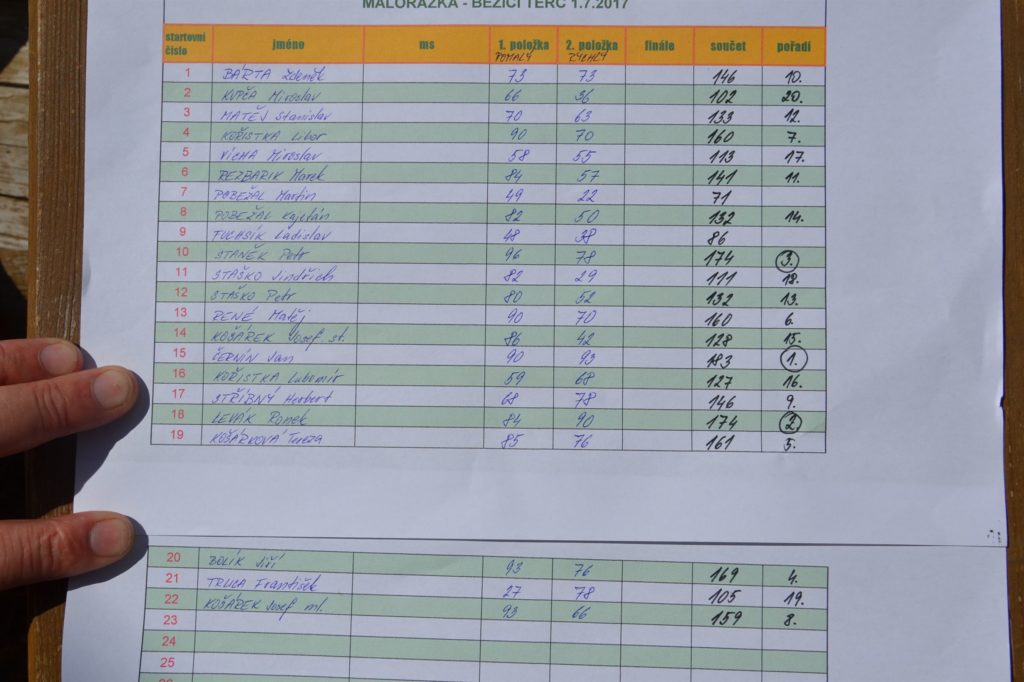 MALORÁŽKA - BĚŽÍCÍ TERČ 1.7.2017
startovní číslo jméno ms 1. položka POMALÝ 2. položka RYCHLÝ finále součet pořadí
1 BÁRTA Zdeněk 73 73 146 10.
2 KUPČA Miroslav 66 36 102 20.
3 MATĚJ Stanislav 70 63 133 12.
4 KOŘISTKA Libor 90 70 160 7.
5 VÍCHA Miroslav 58 55 113 17.
6 REZBARIK Marek 84 57 141 11.
7 POBĚŽAL Martin 49 22 71
8 POBĚŽAL Kajetán 82 50 132 14.
9 FUCHSÍK Ladislav 48 38 86
10 STANĚK Petr 96 78 174 3.
11 STAŠKO Jindřich 82 29 111 18.
12 STAŠKO Petr 80 52 132 13.
13 RENÉ Matěj 90 70 160 6.
14 KOŠÁREK Josef st. 86 42 128 15.
15 ČERNÍN Jan 90 93 183 1.
16 KOŘISTKA Lubomír 59 68 127 16.
17 STŘÍBNÝ Herbert 68 78 146 9.
18 LEVÁK Radek 84 90 174 2.
19 KOŠÁRKOVÁ Tereza 85 76 161 5.
20 BOLÍK Jiří 93 76 169 4.
21 TRULA František 27 78 105 19.
22 KOŠÁREK Josef ml. 93 66 159 8.
23
24
25